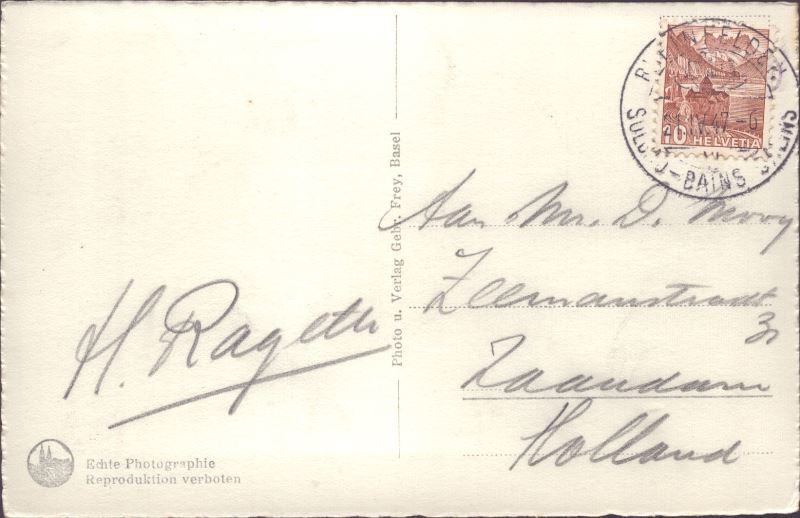 RHEINFELDEN
21.IV.47-6
SOLBAD-BAINS SALINS
10 HELVETIA
Aan Mr. D. Mooy
Zeemanstraat
31
Zaandam
Holland
H. Rageth
Photo u. Verlag Gebr. Frey, Basel
Echte Photographie
Reproduktion verboten